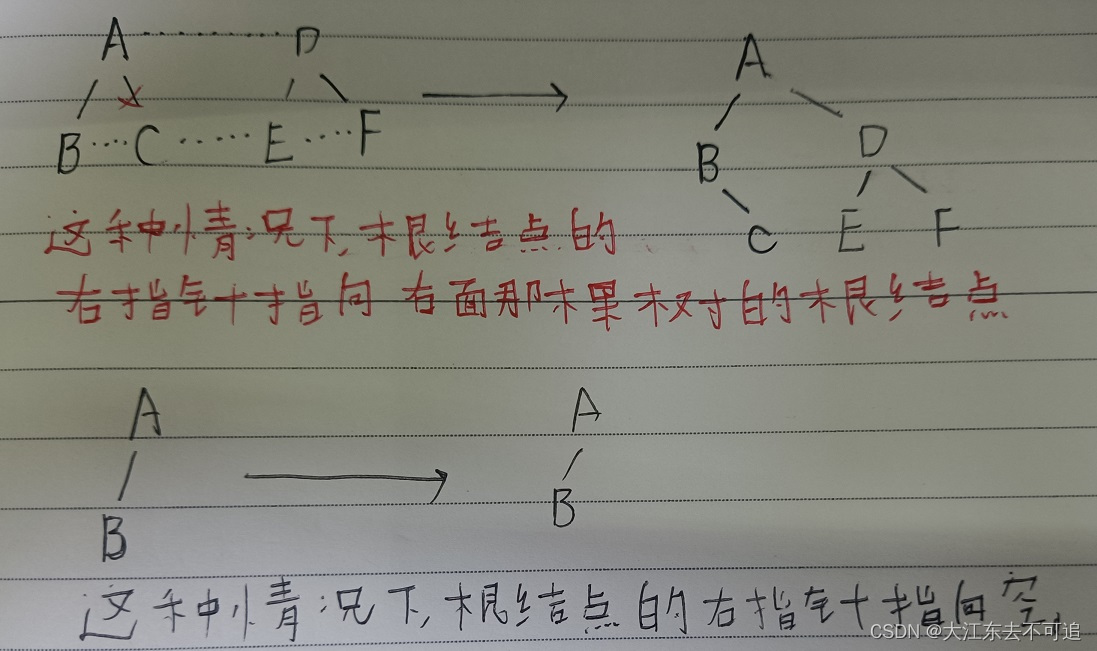 A D A
B C E F B D
C E F
这种情况下,根结点的
右指针指向 右面那棵树的根结点
A A
B B
这种情况下,根结点的右指针指向空,
CSDN @大江东去不可追